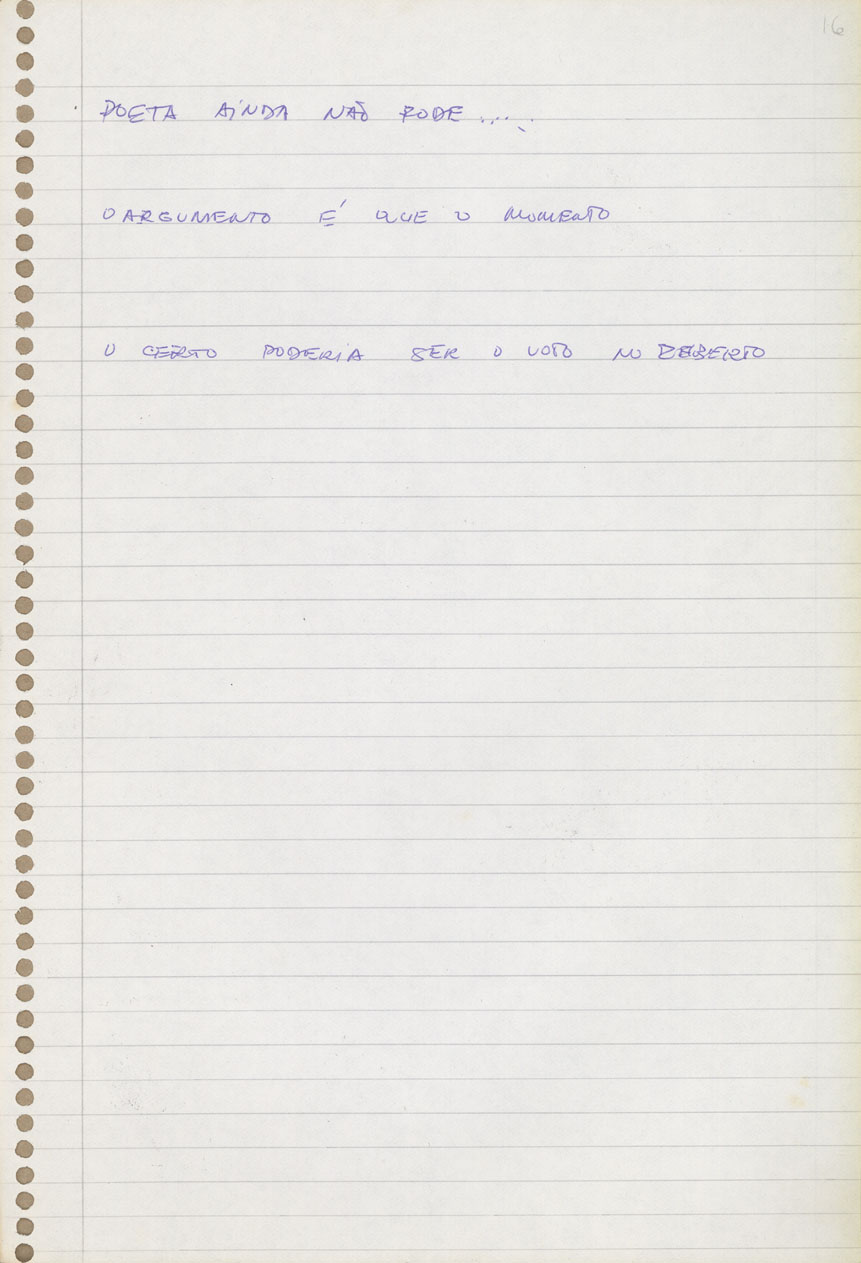 16
POETA AINDA NÃO PODE .....
O ARGUMENTO É QUE O MOMENTO
O CERTO PODERIA SER O VOTO NO